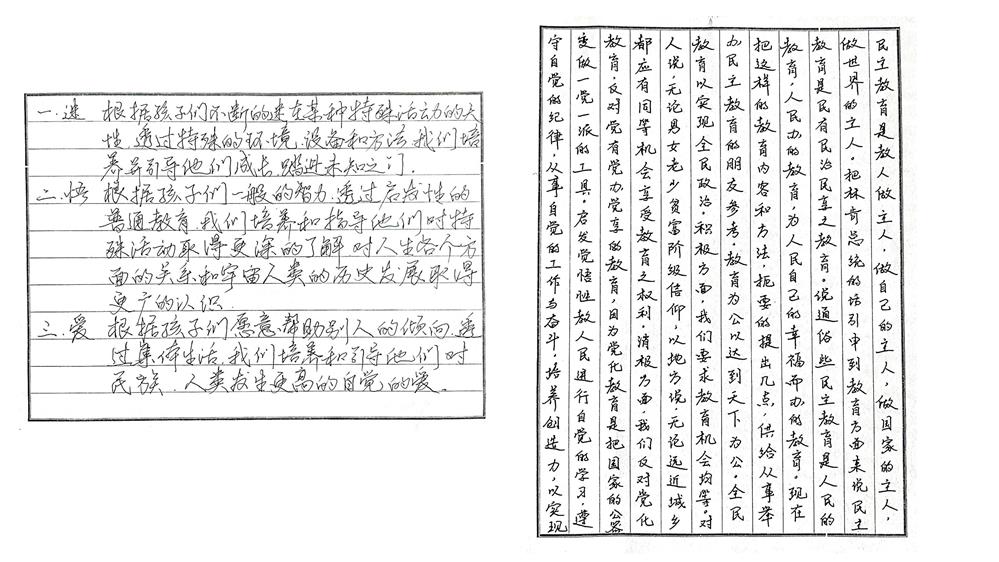 一.迷 根据孩子们不断的迷在某种特殊活动的天
性.透过特殊的环境.设备和方法.我们培
养并引导他们成长.踏进未知之门.
二.悟 根据孩子们一般的智力.透过启发性的
普通教育.我们培养和指导他们对特
殊活动取得更深的了解 对人生各个方
面的关系和宇宙人类的历史发展取得
更广的认识.
三.爱 根据孩子们愿意帮助别人的倾向.透
过集体生活.我们培养和引导他们对
民族.人类发生更高的自觉的爱.
民主教育是教人做主人，做自己的主人，做国家的主人，
做世界的主人。把林肯总统的话引申到教育方面来说民主
教育是民有民治民享之教育。说通俗些民主教育是人民的
教育，人民办的教育，为人民自己的幸福而办的教育。现在
把这样的教育内容和方法，扼要的提出几点，供给从事举
办民主教育的朋友参考。教育为公以达到天下为公。全民
教育以实现全民政治。积极方面，我们要求教育机会均等。对
人说，无论男女老少贫富阶级信仰，以地方说，无论远近城乡
都应有同等机会享受教育之权利。消极方面，我们反对党化
教育。反对党有党办党享的教育，因为党化教育是把国家的公器
变做一党一派的工具。启发觉悟性教人民进行自觉的学习，遵
守自觉的纪律，从事自觉的工作与奋斗。培养创造力，以实现